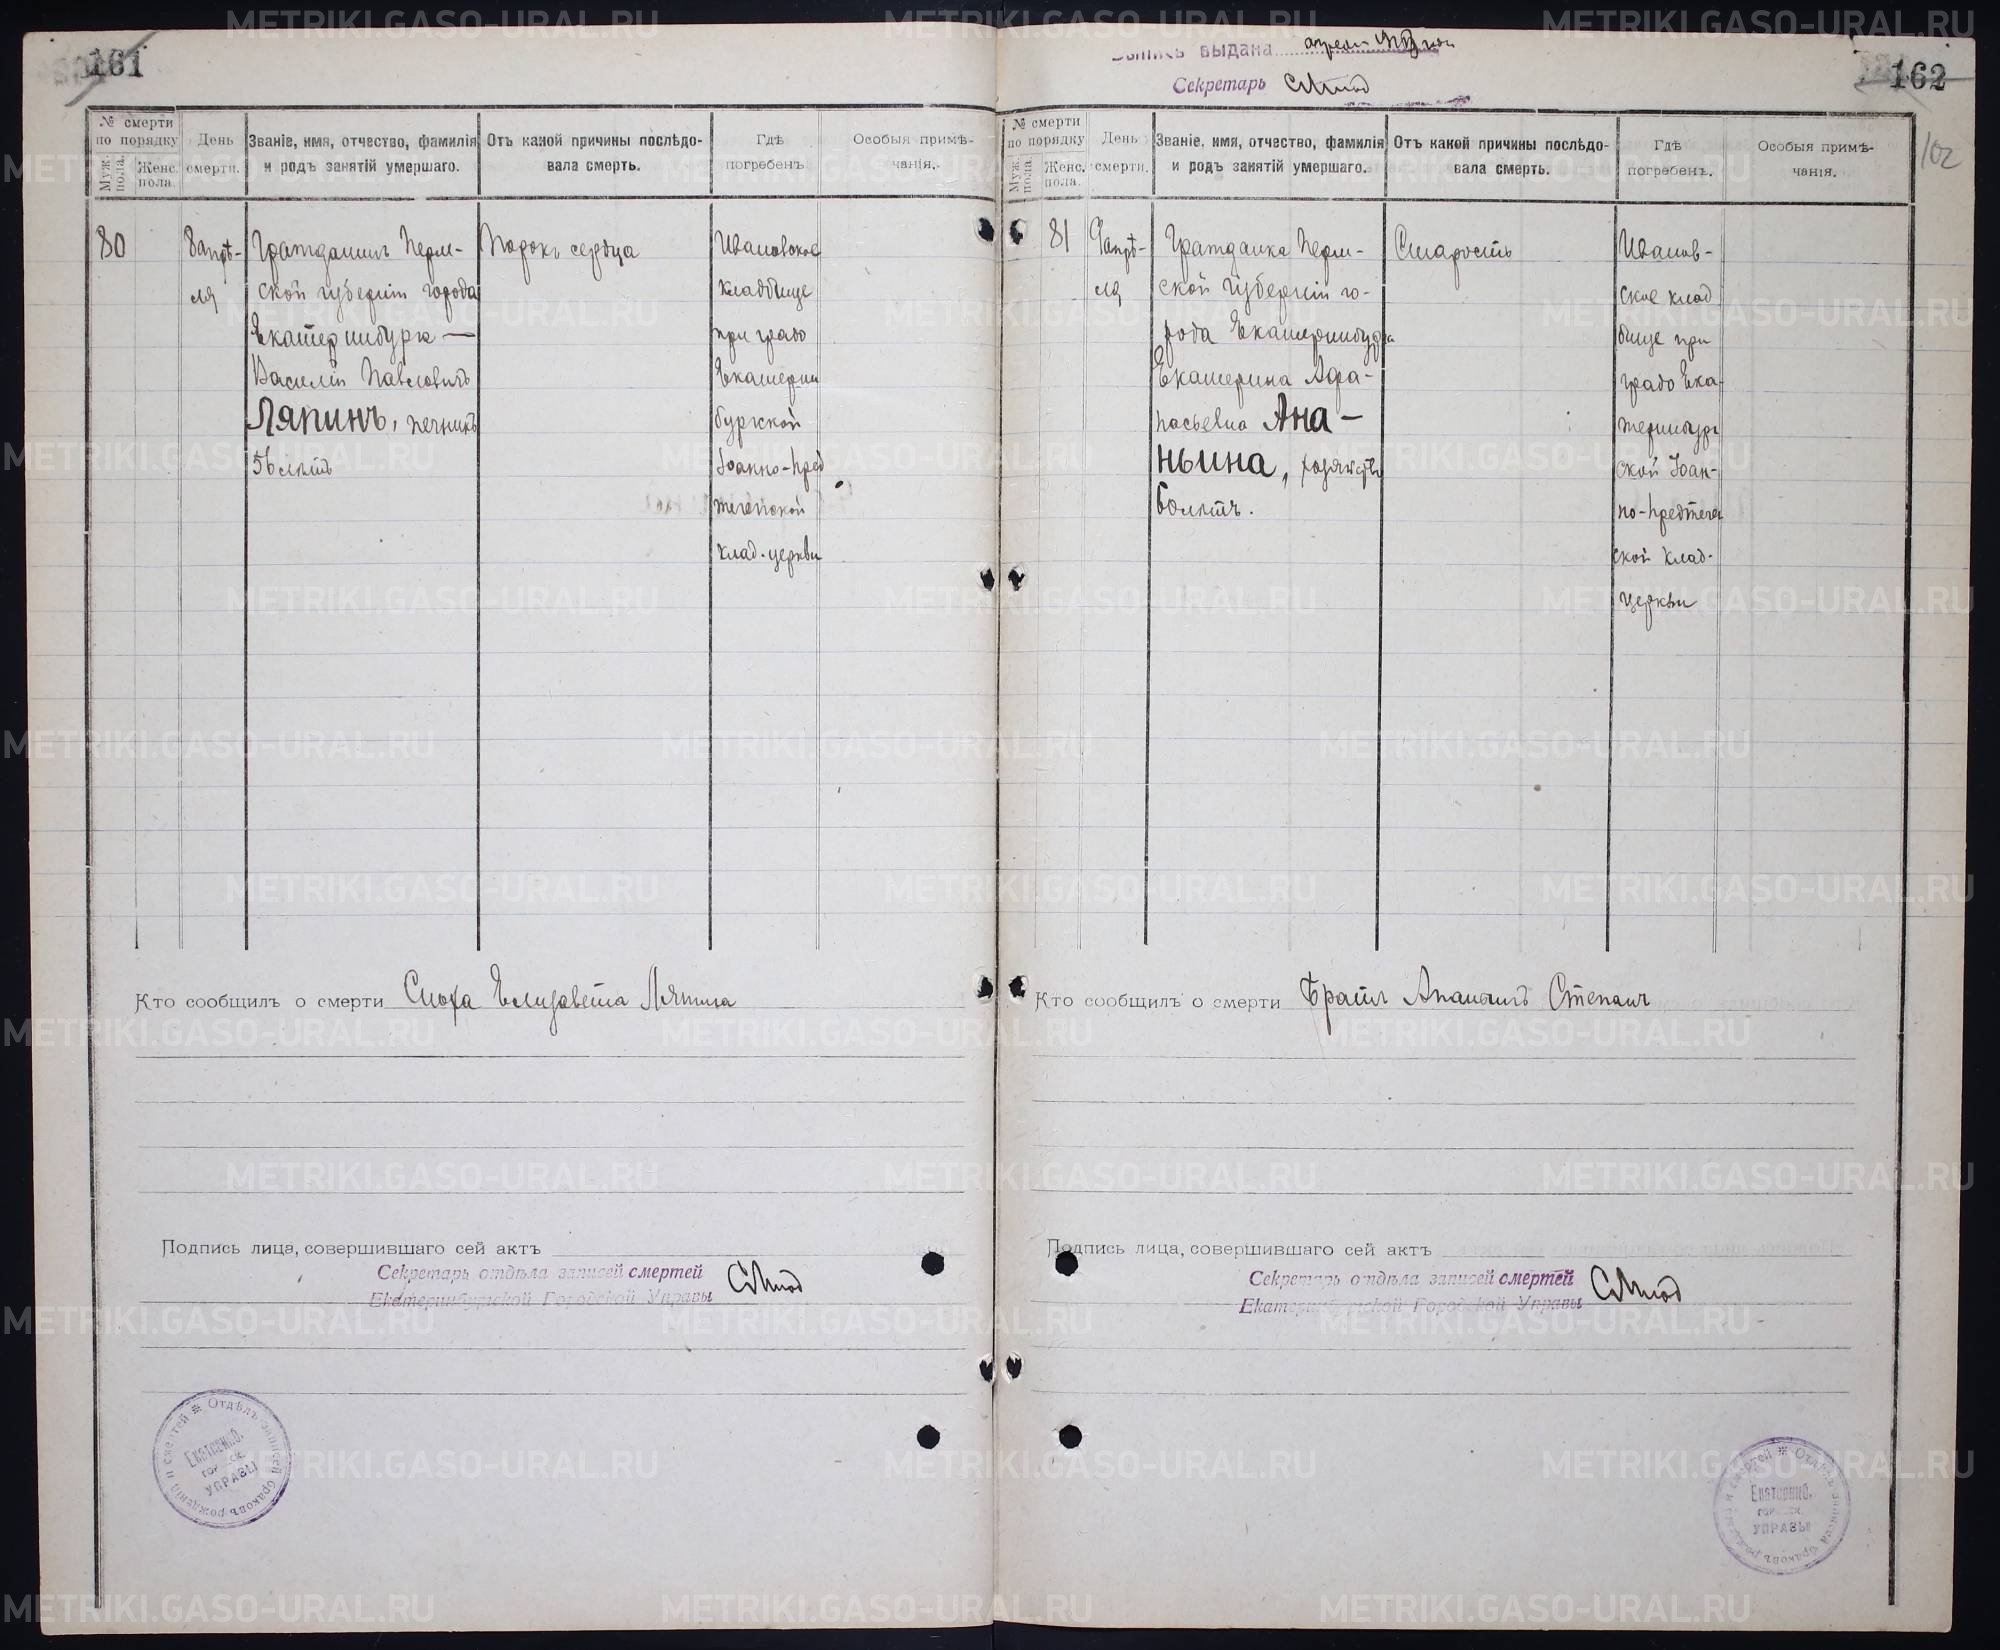 161
№ смерти
по порядку
Муж. пола.
Женс. пола.
День
смерти.
Званіе, имя, отчество, фамилія
и родъ занятій умершаго.
Отъ какой причины послѣдо-
вала смерть.
Гдѣ
погребенъ.
Особыя примѣ-
чанія.
80
8 апрѣ-
ля
Гражданинъ Перм-
ской губерніи города
Екатеринбурга —
Василій Павловичъ
Ляпинъ, печникъ
56 лѣтъ
Порокъ сердца
Ивановское
кладбище
при градо
Екатерин
бургской
Іоанно-Пред
теченской
клад. церкви
Кто сообщилъ о смерти Сноха Елизавета Ляпина
Подпись лица, совершившаго сей актъ
Секретарь отдѣла записей смертей
Екатеринбургской Городской Управы
Отдѣлъ записей браковъ рожденій и смертей
Екатеринб.
городск.
УПРАВЫ
выдана
Секретарь
162
102
№ смерти
по порядку
Муж. пола.
Женс. пола.
День
смерти.
Званіе, имя, отчество, фамилія
и родъ занятій умершаго.
Отъ какой причины послѣдо-
вала смерть.
Гдѣ
погребенъ.
Особыя примѣ-
чанія.
81
апрѣ-
ля
Гражданка Перм-
ской губерніи го-
рода Екатеринбурга
Екатерина Афа-
насьевна Ана-
ньина,
60 лѣтъ.
Старость
Иванов-
ское клад
бище при
градо Ека-
теринбург
ской Іоан-
но-Предтече
ской клад.
церкви
Кто сообщилъ о смерти Братъ Ананьинъ Степанъ
Подпись лица, совершившаго сей актъ
Секретарь отдѣла записей смертей
Екатеринбургской Городской Управы
Отдѣлъ записей браковъ рожденій и смертей
Екатеринб.
городск.
УПРАВЫ
METRIKI.GASO-URAL.RU